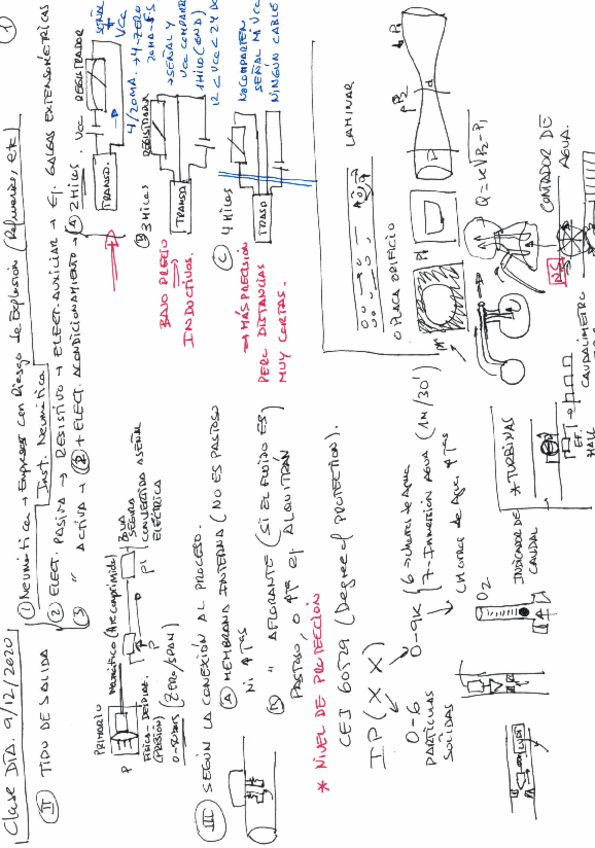 Clase DIA. 9/12/2020
①
II TIPO DE SALIDA
① Neumática → Empresas con Riesgo de Explosión (Refinerías, etc)
Inst. Neumática
② ELECT. PASIVA → RESISTIVO → ELECT. AUXILIAR → Ej. GALGAS EXTENSOMÉTRICAS
③ " ACTIVA → ② + ELECT. ACONDICIONAMIENTO →
Ⓐ 2 HILOS. VCC REGISTRADOR
SEÑAL
+
VCC
TRANSD.
4/20MA. → 4-ZERO
20MA-F.S
Ⓑ 3 HILOS
REGISTRADOR
TRANSD
→ SEÑAL Y
VCC COMPARTEN
1 HILO (GND)
12 < VCC < 24 DC
BAJO PRECIO
INDUCTIVOS.
Ⓒ 4 HILOS
TRANSD
NO COMPARTEN
SEÑAL NI VCC
NINGÚN CABLE
→ MÁS PRECISIÓN
PERO DISTANCIAS
MUY CORTAS.
PRIMARIO
NEUMÁTICO (Aire comprimido)
P
FÍSICA - DESPLAZ.
(PRESIÓN)
(ZERO/SPAN)
P
P1
ZONA
SEGURA
CONVERTIDO A SEÑAL
ELÉCTRICA
III SEGÚN LA CONEXIÓN AL PROCESO.
Ⓐ MEMBRANA INTERNA (NO ES PASTOSO
NI ↑Tas
Ⓑ " AFLORANTE (SI EL FLUIDO ES
PASTOSO, O ↑Tª ej
ALQUITRÁN
* NIVEL DE PROTECCIÓN
CEI 60529 (Degree of PROTECTION).
IP (X X)
0-6
PARTÍCULAS
SÓLIDAS
0-9K
6 → chorros de Agua
7 - Inmersión AGUA (1M/30')
Chorros de Agua ↑Tas
LAMINAR
O PLACA ORIFICIO
P1
P2
d
Q = K√P2-P1
CONTADOR DE
AGUA.
NS
CAUDALÍMETRO
EF.
HALL
* TURBINAS
INDICADOR DE
CAUDAL
O2